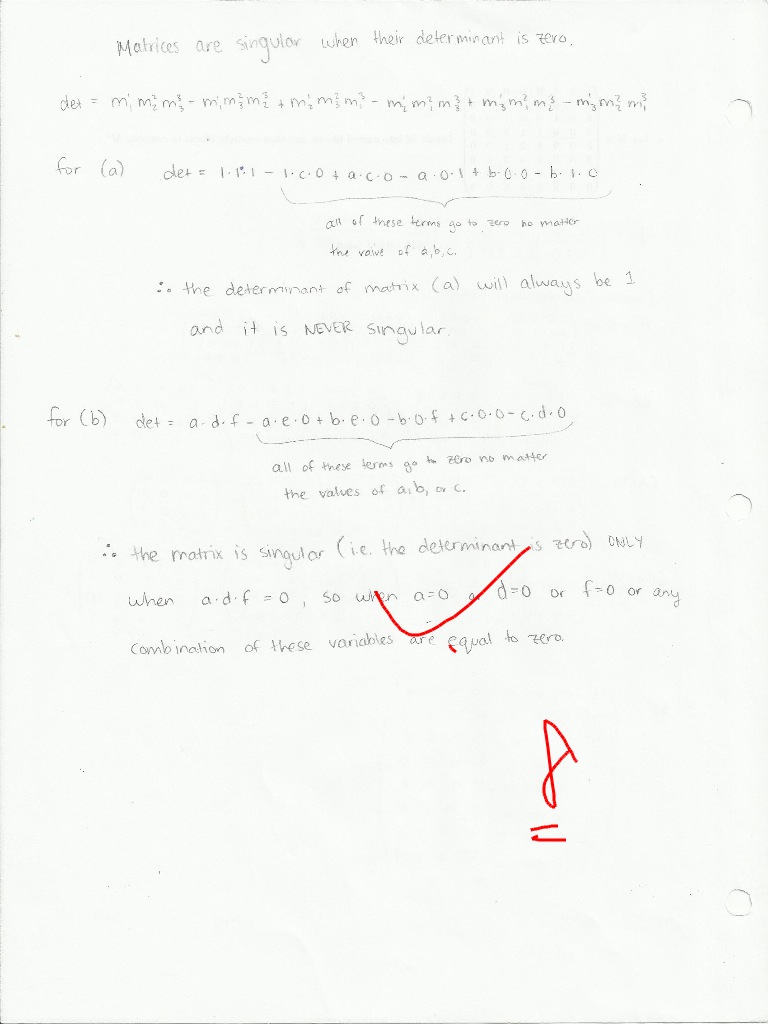 Matrices are singular when their determinant is zero.
det = m¹₁ m²₂ m³₃ - m¹₁ m²₃ m³₂ + m¹₂ m²₃ m³₁ - m¹₂ m²₁ m³₃ + m¹₃ m²₁ m³₂ - m¹₃ m²₂ m³₁
for (a) det = 1·1·1 - 1·c·0 + a·c·0 - a·0·1 + b·0·0 - b·1·0
all of these terms go to zero no matter
the value of a,b,c.
∴ the determinant of matrix (a) will always be 1
and it is NEVER singular.
for (b) det = a·d·f - a·e·0 + b·e·0 - b·0·f + c·0·0 - c·d·0
all of these terms go to zero no matter
the values of a,b, or c.
∴ the matrix is singular (i.e. the determinant is zero) ONLY
when a·d·f = 0, so when a=0 or d=0 or f=0 or any
combination of these variables are equal to zero.